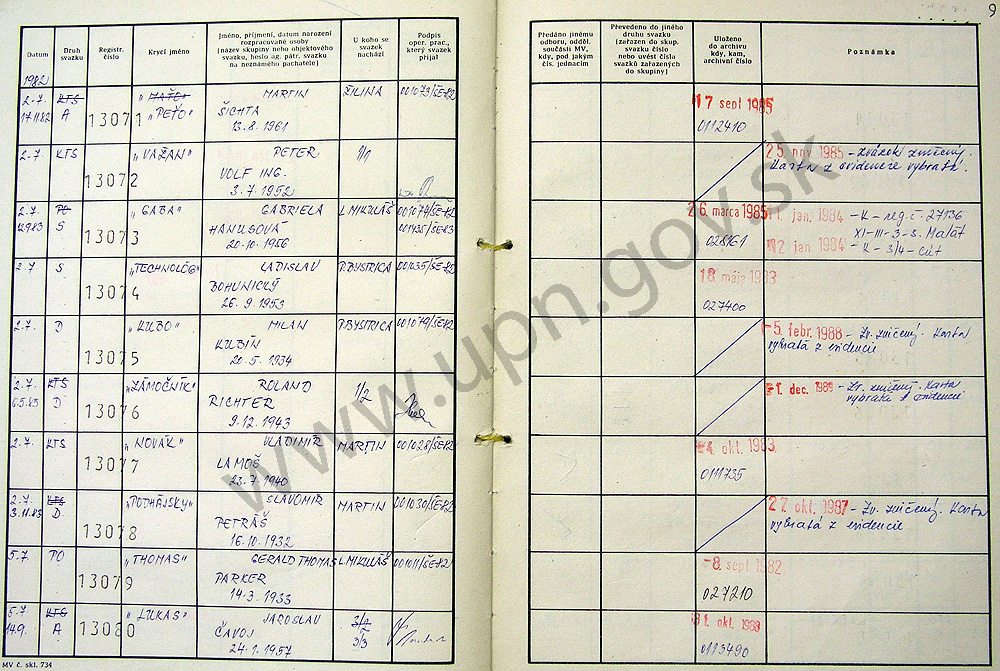 9
Datum
Druh svazku
Registr. číslo
Krycí jméno
Jméno, příjmení, datum narození
rozpracované osoby
(název skupiny nebo objektového
svazku, heslo ag. pátr. svazku
na neznámého pachatele)
U koho se
svazek
nachází
Podpis
oper. prac.,
který svazek
přijal
Předáno jinému
odboru, odděl.
součásti MV,
kdy, pod jakým
čís. jednacím
Převedeno do jiného
druhu svazku
(zařazen do skup.
svazku číslo
nebo uvést čísla
svazků zařazených
do skupiny)
Uloženo
do archívu
kdy, kam,
archivní číslo
Poznámka
1982
2.7. KTS 13071 "MAŤO" MARTIN ŽILINA 001073/ŠE-82 17 sept 1985
17.11.82 A "PEŤO" ŠICHTA 0112410
13.8.1961
2.7. KTS 13072 "VAŽAN" PETER 1/1 25 nov 1985 - Zväzok zničený.
VOLF ING. Karta z evidencie vybratá.
3.7.1952
2.7. PO 13073 "GABA" GABRIELA L.MIKULÁŠ 001074/ŠE-82 26. marca 1985 11. jan. 1984 - K - reg. č. 27136
S HANUSOVÁ 028161 XI-III-3-S. Malát
20.10.1956 12 jan. 1984 - K - 3/4- Cút
2.7 S 13074 "TECHNOLÓG" LADISLAV P.BYSTRICA 001035/ŠE-82 18. mája 1983
BOHUNICKÝ 027400
26.9.1953
2.7. D 13075 "KUBO" MILAN P.BYSTRICA 001079/ŠE-82 -5. febr. 1988 - Zv. zničený. Karta
KUBÍN vybratá z evidencie
20.5.1934
2.7. KTS 13076 "ZÁMOČNÍK" ROLAND 1/2 -1. dec. 1989 - Zv. zničený. Karta
6.5.83 D RICHTER vybratá z evidencie
9.12.1943
2.7. KTS 13077 "NOVÁK" VLADIMÍR MARTIN 001028/ŠE-82 -4. okt. 1983
LAMOŠ 0111735
23.7.1940
2.7. KTS 13078 SLAVOMÍR MARTIN 001030/ŠE-82 27. okt. 1987 - Zv. zničený. Karta
3.11.83 D PETRÁŠ vybratá z evidencie
16.10.1932
5.7 PO 13079 "THOMAS" GERALD THOMAS L.MIKULÁŠ 001011/ŠE-82 -8. sept 1982
PARKER 027210
14.3.1933
5.7 KTS 13080 "LUKAS" JAROSLAV 3/2 31. okt. 1988
14.9. A ČAVOJ 3/3 0113490
24.1.1957
MV č. skl. 734
www.upn.gov.sk